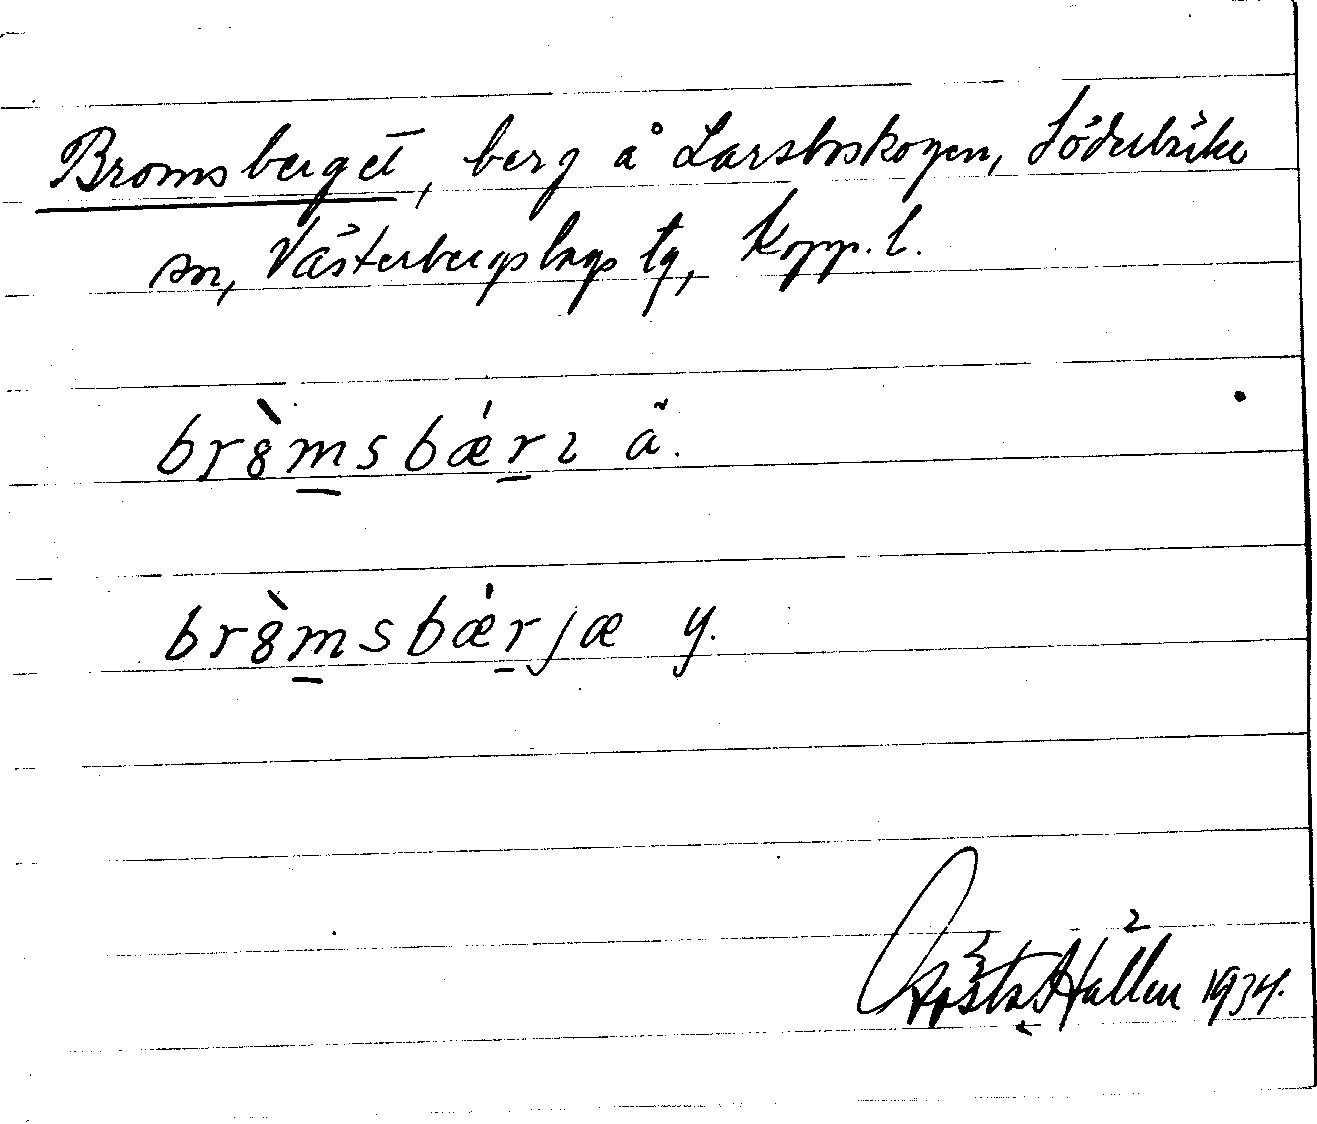 Bromsberget, berg å Larsboskogen, Söderbärke
sn, Västerbergslags tg, Kopp. l.
br8̀m̲sbǽr̲ɩ ä.
br8̀m̲sbǽr̲jæ y.
Gösta Hallén 1934.